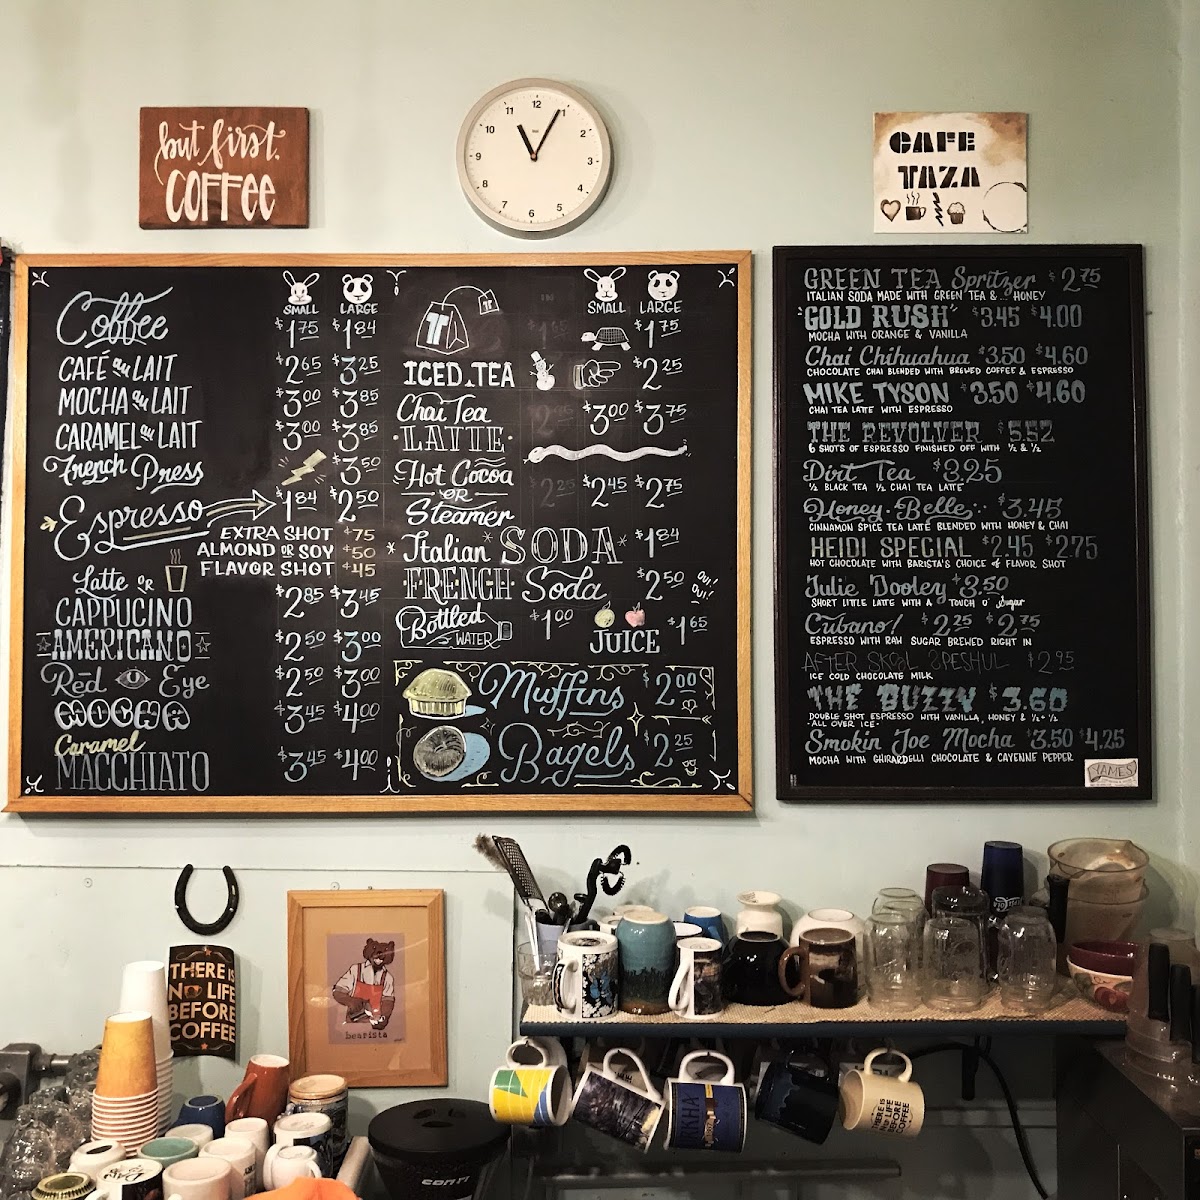 but first,
COFFEE
12
1
2
3
4
5
6
7
8
9
10
11
CAFE
TAZA
SMALL LARGE
Coffee $1.75 $1.84
CAFÉ au LAIT $2.65 $3.25
MOCHA au LAIT $3.00 $3.85
CARAMEL au LAIT $3.00 $3.85
French Press $3.50
Espresso $1.84 $2.50
EXTRA SHOT $.75
ALMOND OR SOY $.50
FLAVOR SHOT $.45
Latte OR
CAPPUCINO $2.85 $3.45
AMERICANO $2.50 $3.00
Red Eye $2.50 $3.00
MOCHA $3.45 $4.00
Caramel
MACCHIATO $3.45 $4.00
SMALL LARGE
T $1.75
ICED TEA $2.25
Chai Tea
LATTE $3.00 $3.75
Hot Cocoa
OR
Steamer $2.45 $2.75
Italian SODA $1.84
FRENCH Soda $2.50 OUI! OUI!
Bottled
WATER $1.00 JUICE $1.65
Muffins $2.00
Bagels $2.25
GREEN TEA Spritzer $2.75
ITALIAN SODA MADE WITH GREEN TEA &... HONEY
"GOLD RUSH" $3.45 $4.00
MOCHA WITH ORANGE & VANILLA
Chai Chihuahua $3.50 $4.60
CHOCOLATE CHAI BLENDED WITH BREWED COFFEE & ESPRESSO
MIKE TYSON $3.50 $4.60
CHAI TEA LATTE WITH ESPRESSO
THE REVOLVER $5.52
6 SHOTS OF ESPRESSO FINISHED OFF WITH ½ & ½
Dirt Tea $3.25
½ BLACK TEA ½ CHAI TEA LATTE
Honey Belle $3.45
CINNAMON SPICE TEA LATTE BLENDED WITH HONEY & CHAI
HEIDI SPECIAL $2.45 $2.75
HOT CHOCOLATE WITH BARISTA'S CHOICE of FLAVOR SHOT
Julie Dooley $3.50
SHORT LITTLE LATTE WITH A TOUCH O' Sugar
Cubano! $2.25 $2.75
ESPRESSO WITH RAW SUGAR BREWED RIGHT IN
AFTER SKOOL SPESHUL $2.95
ICE COLD CHOCOLATE MILK
THE BUZZY $3.60
DOUBLE SHOT ESPRESSO WITH VANILLA, HONEY & ½ + ½
- ALL OVER ICE -
Smokin Joe Mocha $3.50 $4.25
MOCHA WITH GHIRARDELLI CHOCOLATE & CAYENNE PEPPER
YAMES
THERE IS
NO LIFE
BEFORE
COFFEE
bearista
THERE IS
NO LIFE
BEFORE
COFFEE